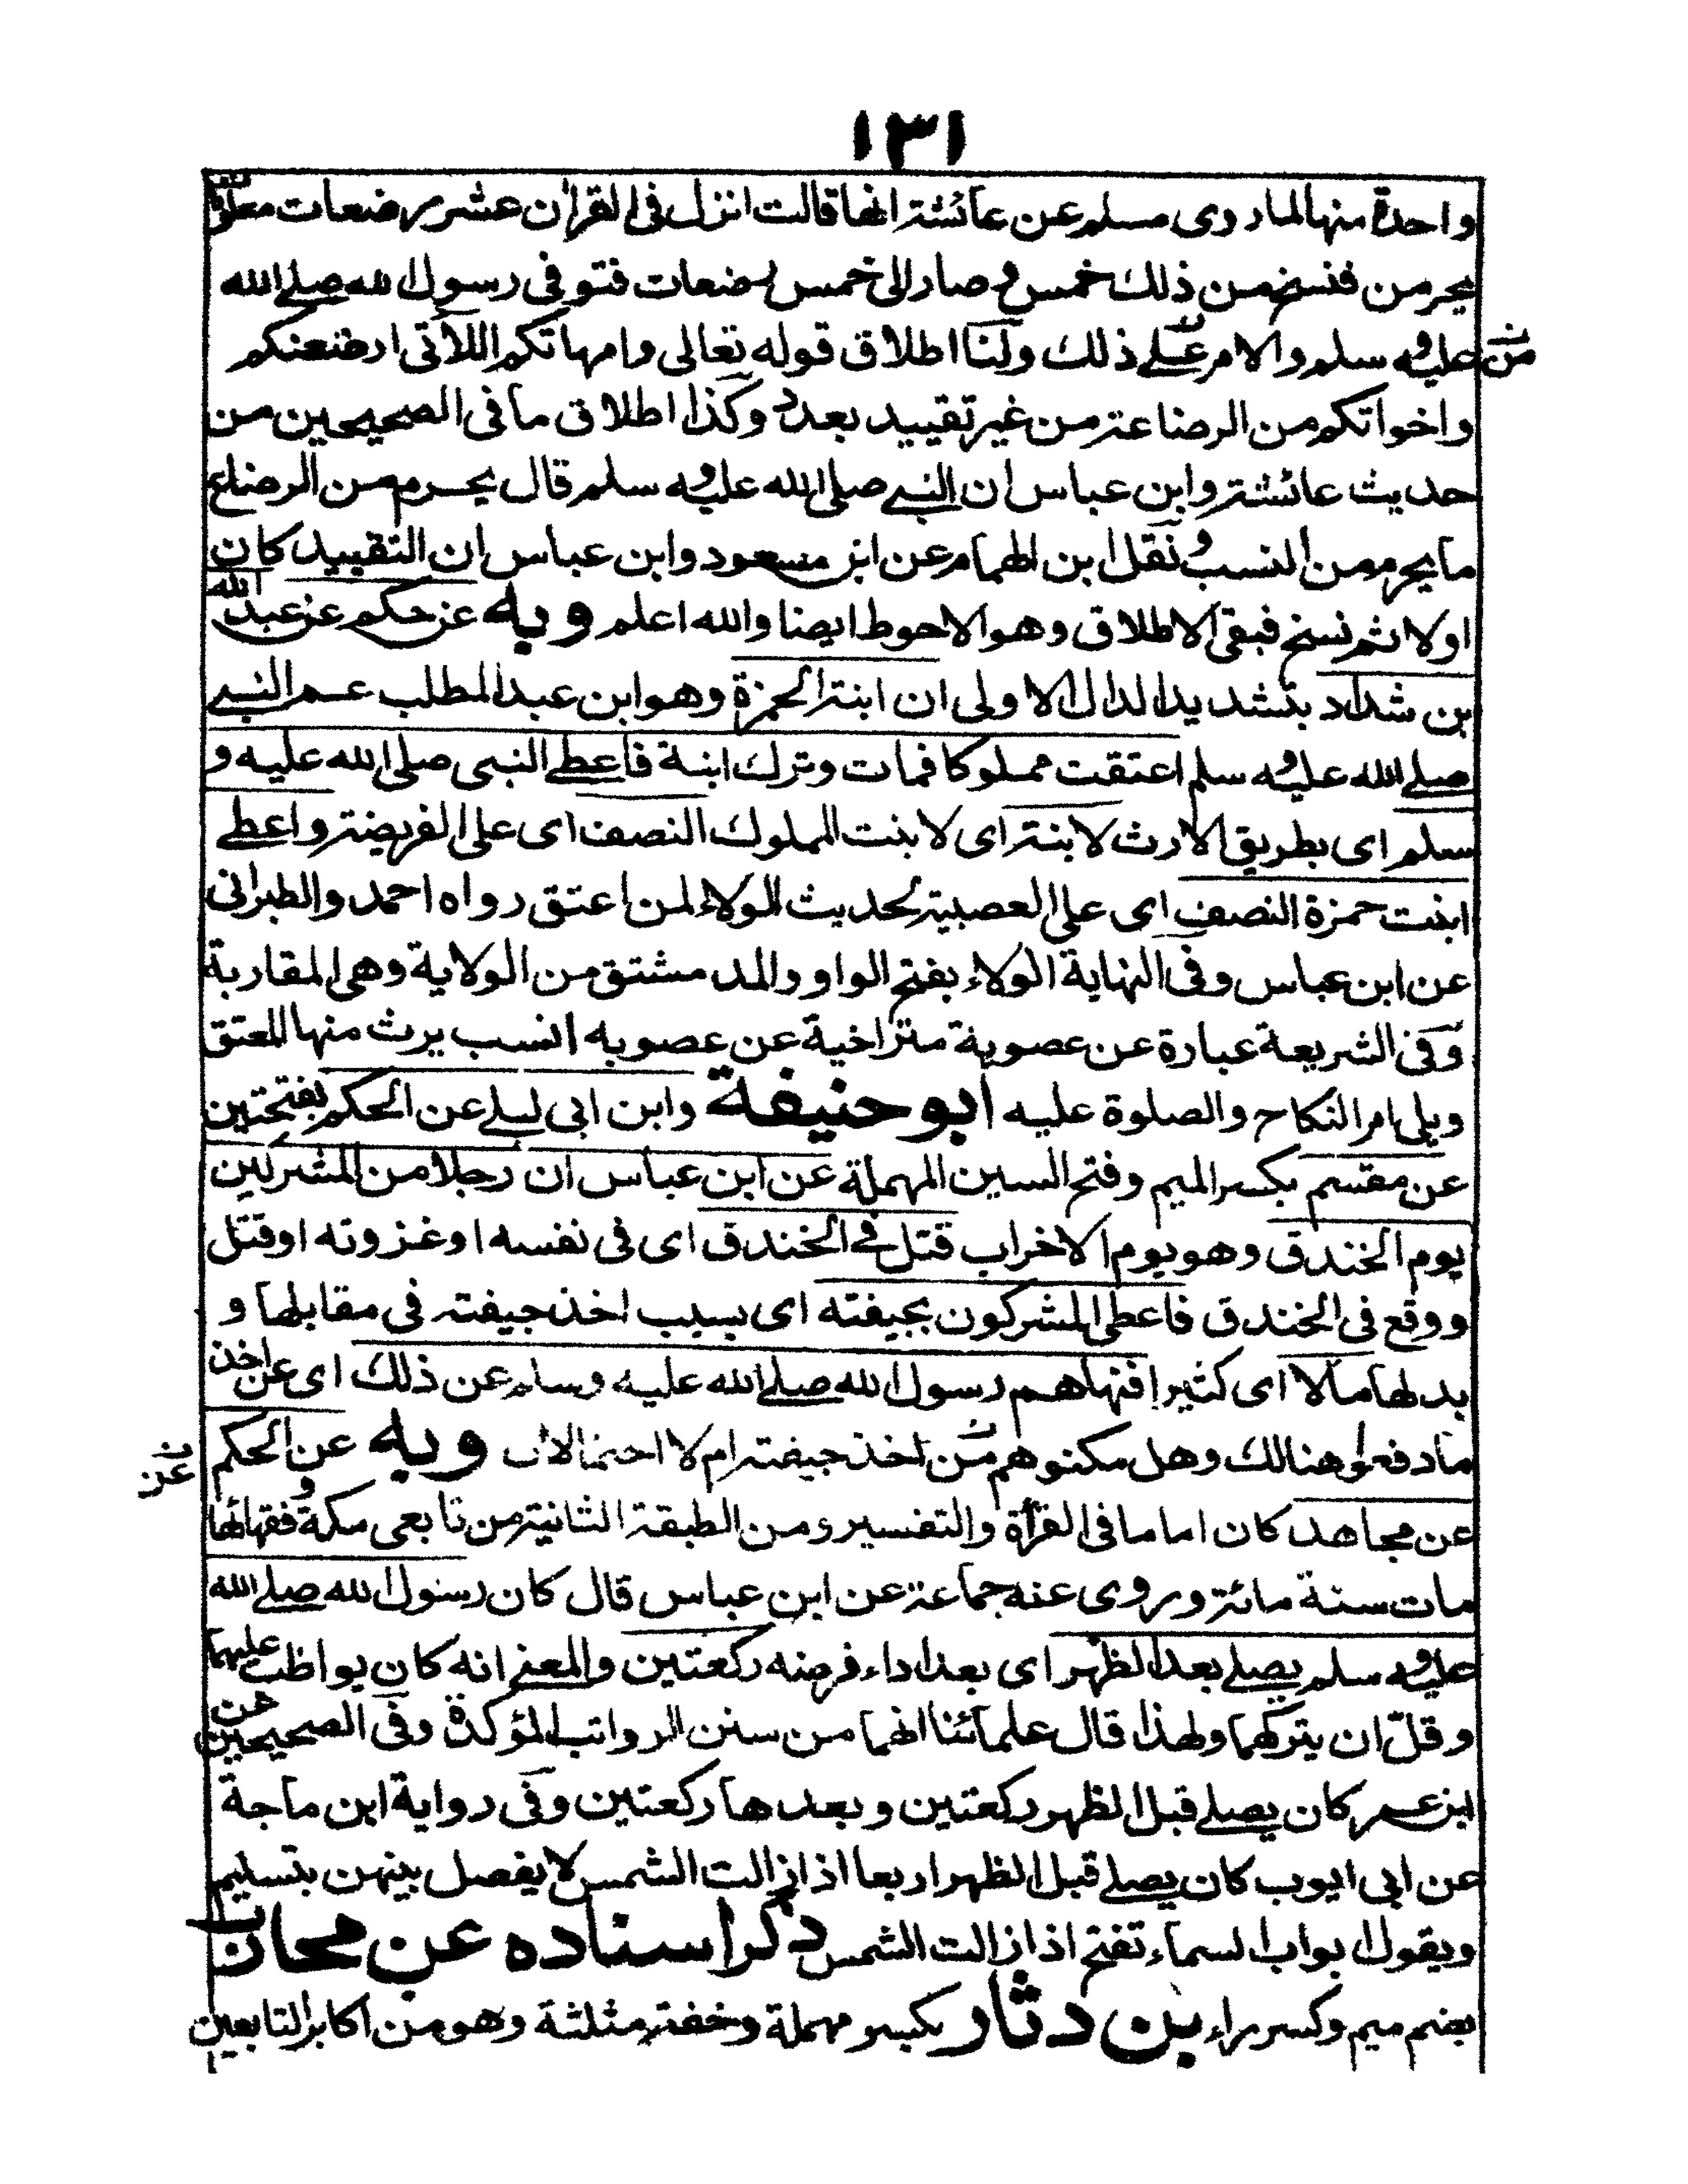 ١٣١
واحدة منها لما روى مسلم عن عائشة انها قالت انزل فى القرآن عشر رضعات
يحرمن فنسخ من ذلك خمس و صار الى خمس رضعات فتوفى رسول الله صلے الله
عليه و سلم والامر علے ذلك ولنا اطلاق قوله تعالى وامهاتكم اللاتى ارضعنكم
واخواتكم من الرضاعة من غير تقييد بعدد وكذا اطلاق ما فى الصحيحين من
حديث عائشة وابن عباس ان النبے صلى الله عليه و سلم قال يحرم من الرضاع
ما يحرم من النسب و نقل ابن الهمام عن ابن مسعود وابن عباس ان التقييد كان
اولا ثم نسخ فبقى الاطلاق وهو الاحوط ايضا والله اعلم وبه عن حكم عن عبد الله
بن شداد بتشديد الدال الاولى ان ابنة الحمزة وهو ابن عبد المطلب عم النبے
صلے الله عليه و سلم اعتقت مملوكا فمات وترك ابنة فاعطے النبى صلى الله عليه و
سلم اى بطريق الارث لابنة اى لابنت المملوك النصف اى على الفريضة واعطے
ابنت حمزة النصف اى على العصبية لحديث الولاء لمن اعتق رواه احمد والطبرانى
عن ابن عباس وفى النهاية الولاء بفتح الواو والمد مشتق من الولاية وهى المقاربة
وفى الشريعة عبارة عن عصوبة متراخية عن عصوبه النسب يرث منها المعتق
ويلى امر النكاح والصلوة عليه ابو حنيفة وابن ابى ليلے عن الحكم بفتحتين
عن مقسم بكسر الميم وفتح السين المهملة عن ابن عباس ان رجلا من المشركين
يوم الخندق وهو يوم الاخراب قتل فے الخندق اى فى نفسه او غزوته او قتل
ووقع فى الخندق فاعطى المشركون بجيفته اى بسبب اخذ جيفته فى مقابلها و
بدلها مالا اى كثيرا فنهاهم رسول الله صلے الله عليه وسلم عن ذلك اى عن اخذ
ما دفعوا هنالك وهل مكنوهم من اخذ جيفته ام لا احتمالان وبه عن الحكم
عن مجاهد كان اماما فى القرأة والتفسير ومن الطبقة الثانية من تابعى مكة و فقهائها
مات سنة مائة وروى عنه جماعة عن ابن عباس قال كان رسول الله صلے الله
عليه و سلم يصلے بعد الظهر اى بعد اداء فرضه ركعتين والمعنے انه كان يواظب عليهما
وقلّ ان يتركهما ولهذا قال علمائنا انهما من سنن الرواتب المؤكدة وفى الصحيحين عن
ابن عمر كان يصلے قبل الظهر ركعتين وبعدها ركعتين وفى رواية ابن ماجة
عن ابى ايوب كان يصلے قبل الظهر اربعا اذا زالت الشمس لا يفصل بينهن بتسليم
ويقول ابواب السماء تفتح اذا زالت الشمس ذكر اسناده عن محارب
بضم ميم وكسر راء بن دثار بكسر مهملة وخفة مثلثة وهو من اكابر التابعين